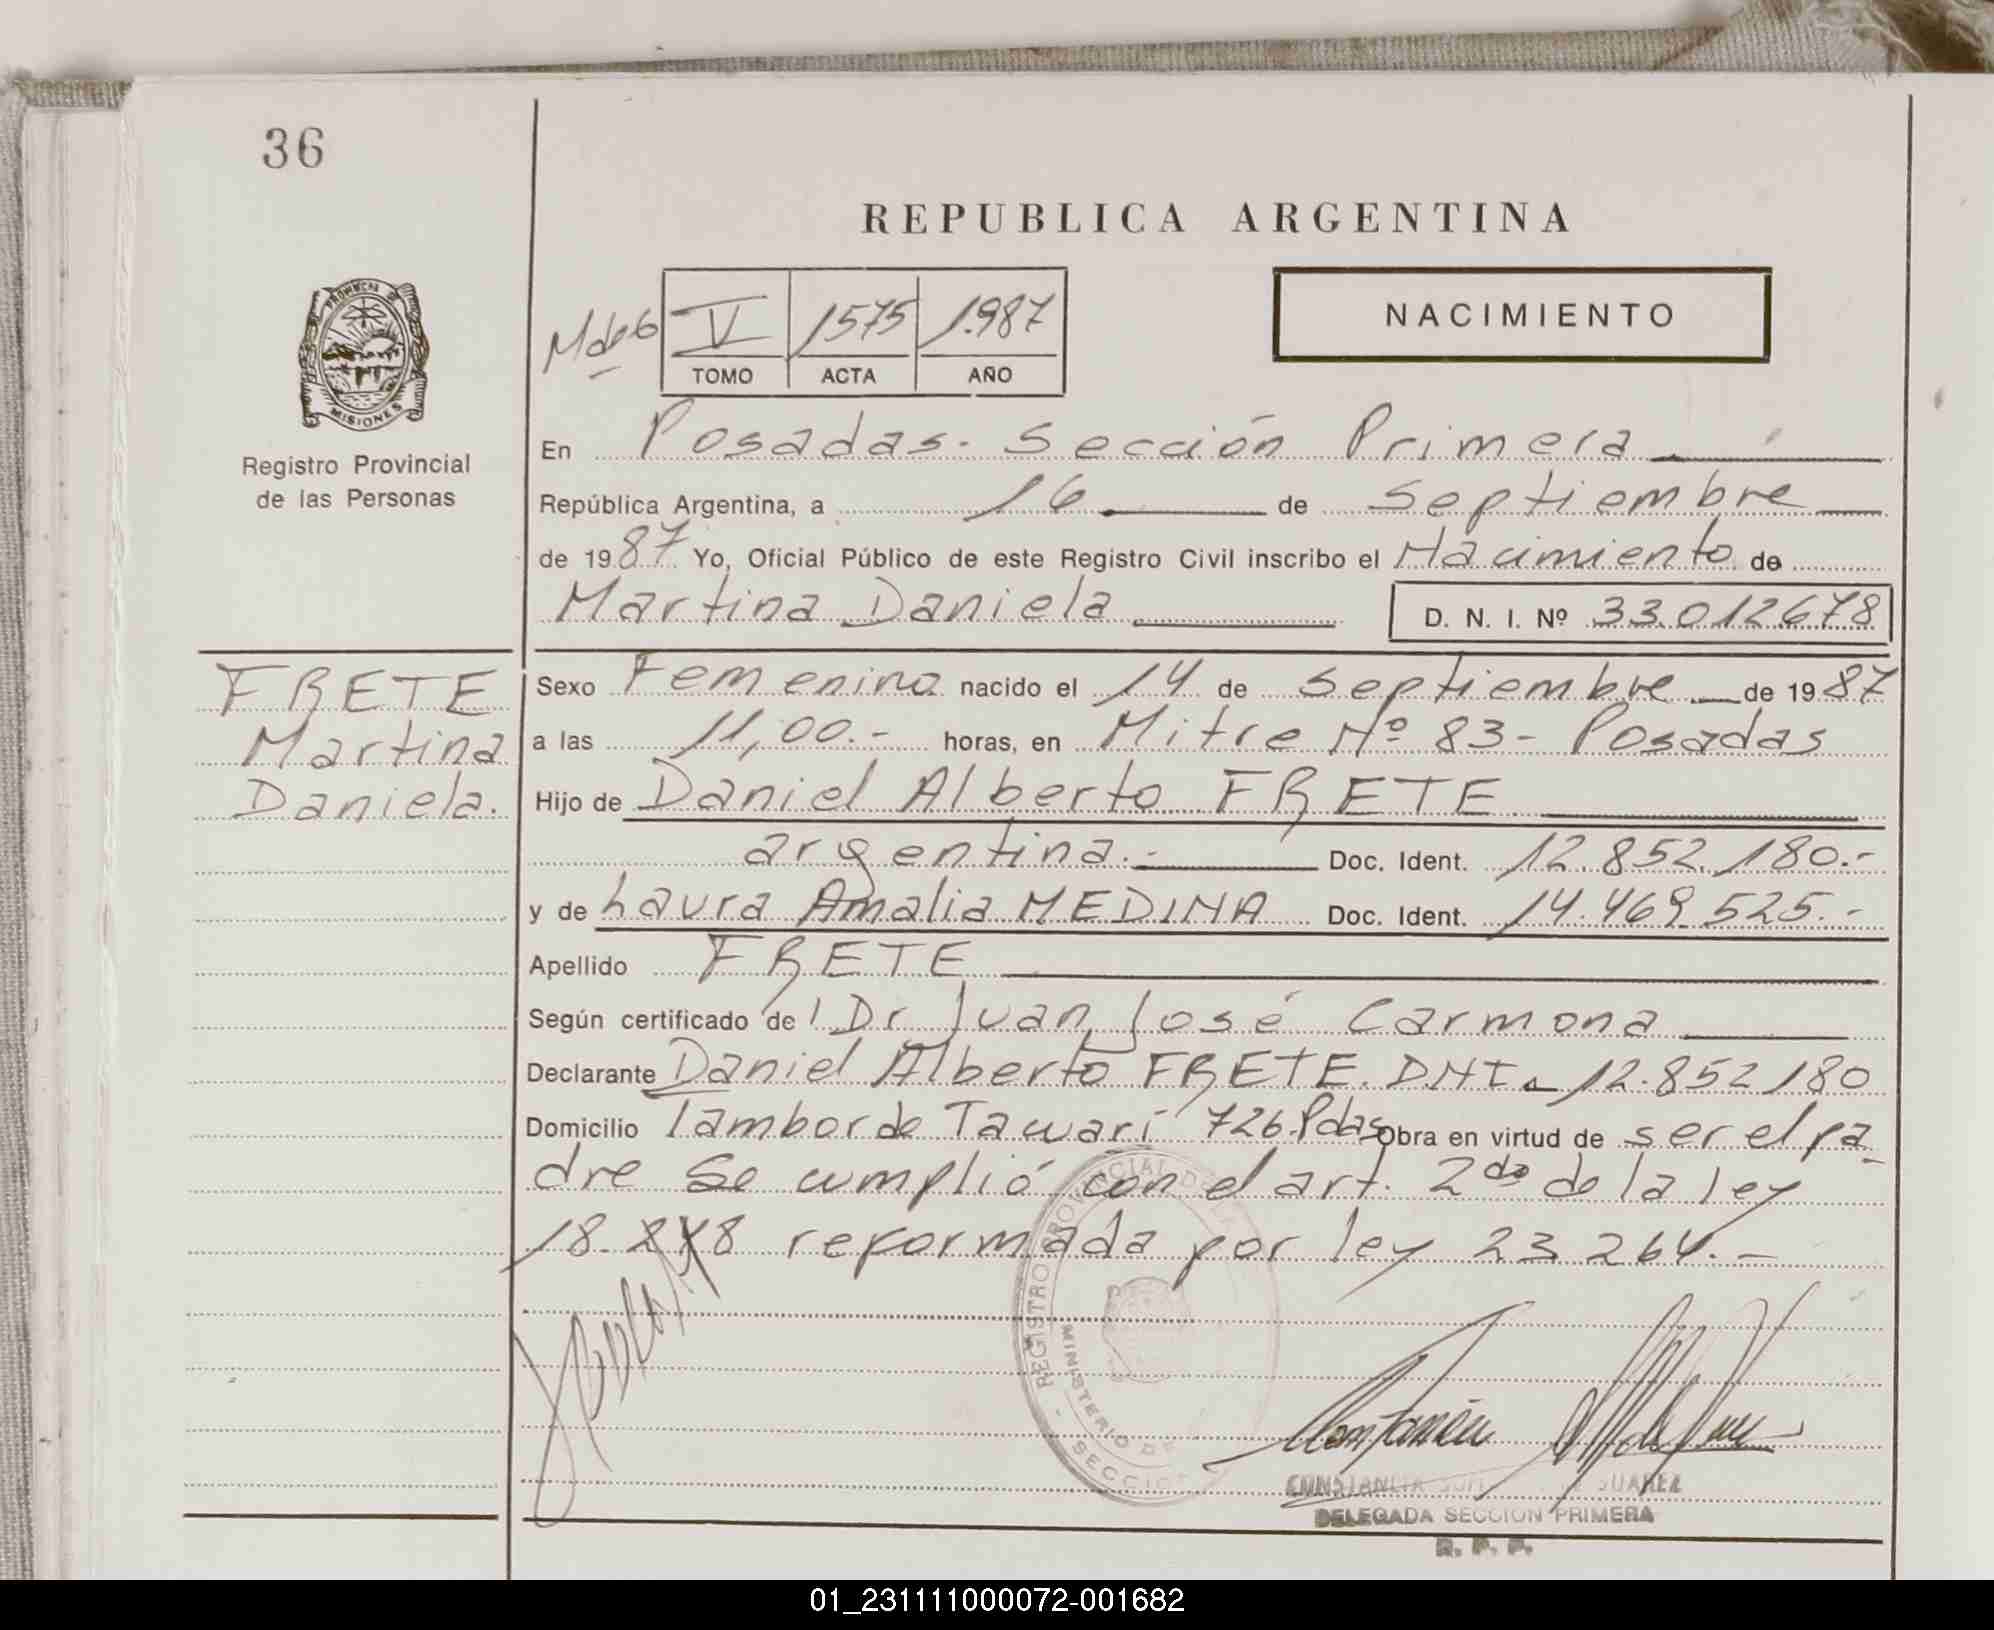 36
REPUBLICA ARGENTINA
NACIMIENTO
V 1575 1.987
TOMO ACTA AÑO
PROVINCIA DE
MISIONES
Registro Provincial
de las Personas
En Posadas. Sección Primera
República Argentina, a 16 de Septiembre
de 1987 Yo, Oficial Público de este Registro Civil inscribo el Nacimiento de
Martina Daniela D. N. I. Nº 33.012.678
FRETE
Martina
Daniela.
Sexo Femenino nacido el 14 de Septiembre de 1987
a las 11,00.- horas, en Mitre Nº 83- Posadas
Hijo de Daniel Alberto FRETE
argentina.- Doc. Ident. 12.852.180.-
y de Laura Amalia MEDINA Doc. Ident. 14.469.525.-
Apellido FRETE
Según certificado de Dr Juan José Carmona
Declarante Daniel Alberto FRETE. DNI 12.852.180
Domicilio Tambor de Tacuarí 726. Pdas Obra en virtud de ser el pa-
dre Se cumplió con el art. 2do de la ley
18.248 reformada por ley 23.264.-
REGISTRO PROVINCIAL DE
MINISTERIO DE
CONSTANCIA SUAREZ
DELEGADA SECCION PRIMERA
R. P. P.
01_231111000072-001682